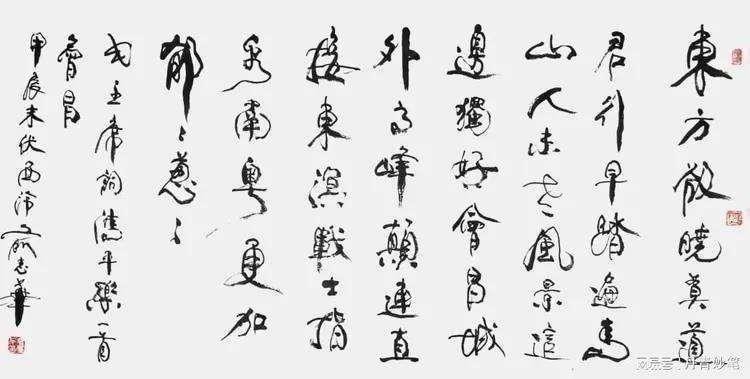 東方欲曉莫道
君行早踏遍青
山人未老風景這
邊獨好會昌城
外高峰顛連直
接東溟戰士指
看南粤更加
郁〻蔥〻
毛主席詞清平樂一首
會昌
甲辰末伏西 志華
搜狐号@丹青妙笔